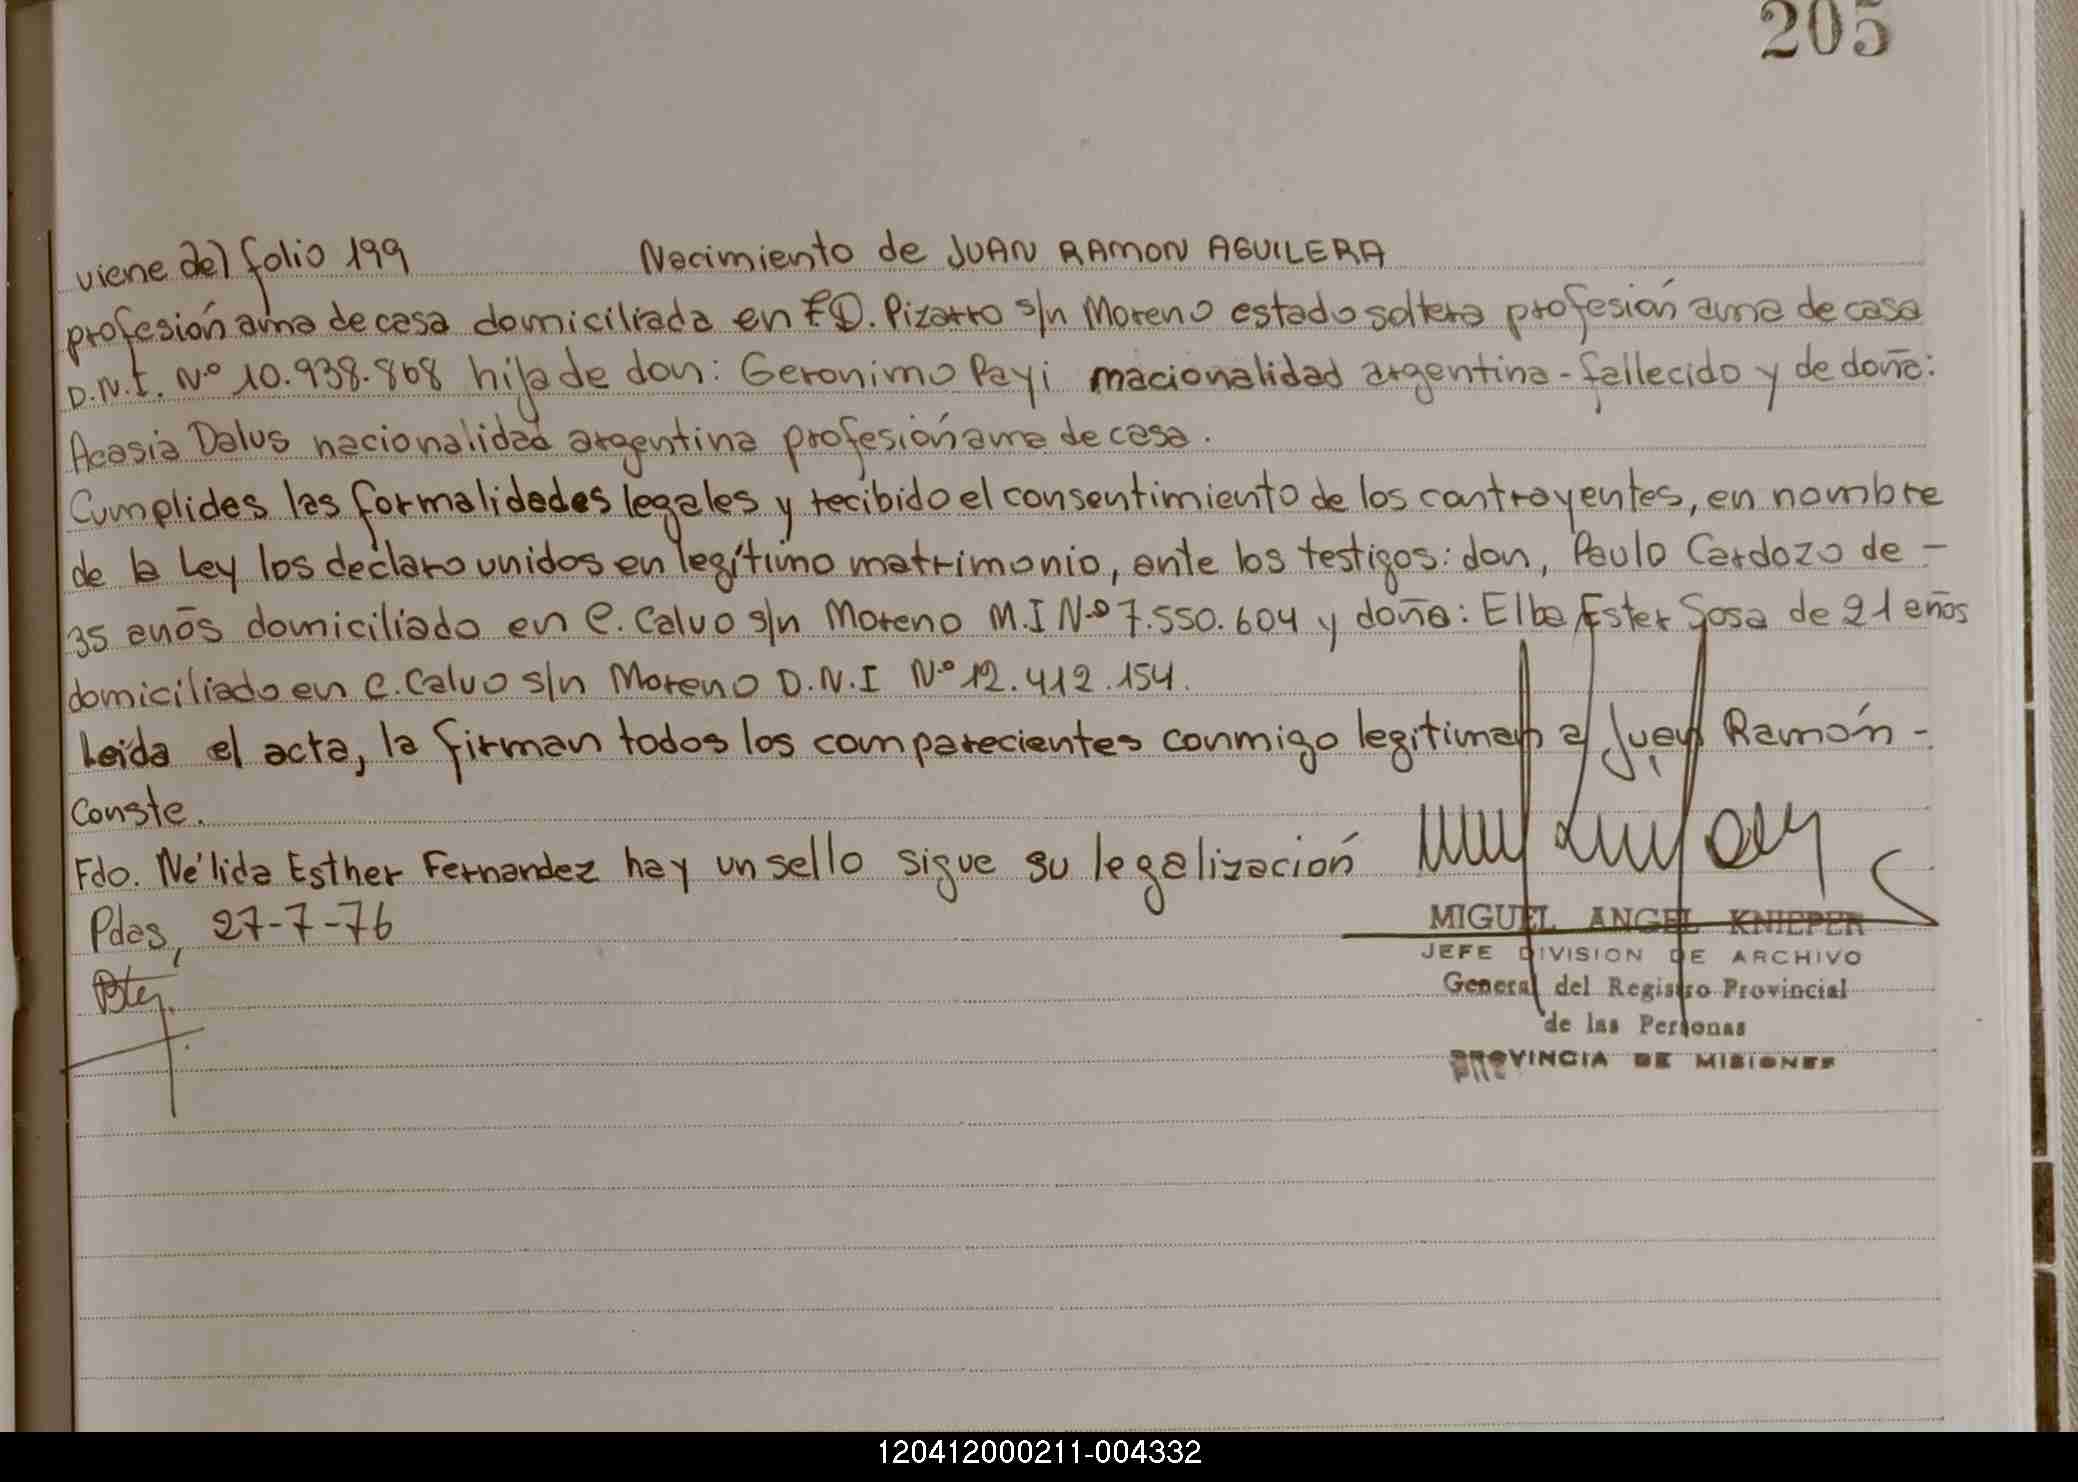 205
viene del folio 199 Nacimiento de JUAN RAMON AGUILERA
profesión ama de casa domiciliada en FD. Pizarro s/n Moreno estado soltera profesión ama de casa
D.N.I. Nº 10.938.868 hija de don: Geronimo Payi nacionalidad argentina - fallecido y de doña:
Acasia Dalus nacionalidad argentina profesión ama de casa.
Cumplidas las formalidades legales y recibido el consentimiento de los contrayentes, en nombre
de la Ley los declaro unidos en legítimo matrimonio, ante los testigos: don, Paulo Cardozo de -
35 años domiciliado en C. Calvo s/n Moreno M.I Nº 7.550.604 y doña: Elba Ester Sosa de 21 años
domiciliado en C. Calvo s/n Moreno D.N.I Nº 12.412.154.
Leída el acta, la firman todos los comparecientes conmigo legitiman a Juan Ramón -
Conste.
Fdo. Nélida Esther Fernandez hay un sello sigue su legalización
Pdas, 27-7-76
MIGUEL ANGEL KNIEPER
JEFE DIVISION DE ARCHIVO
General del Registro Provincial
de las Personas
PROVINCIA DE MISIONES
120412000211-004332